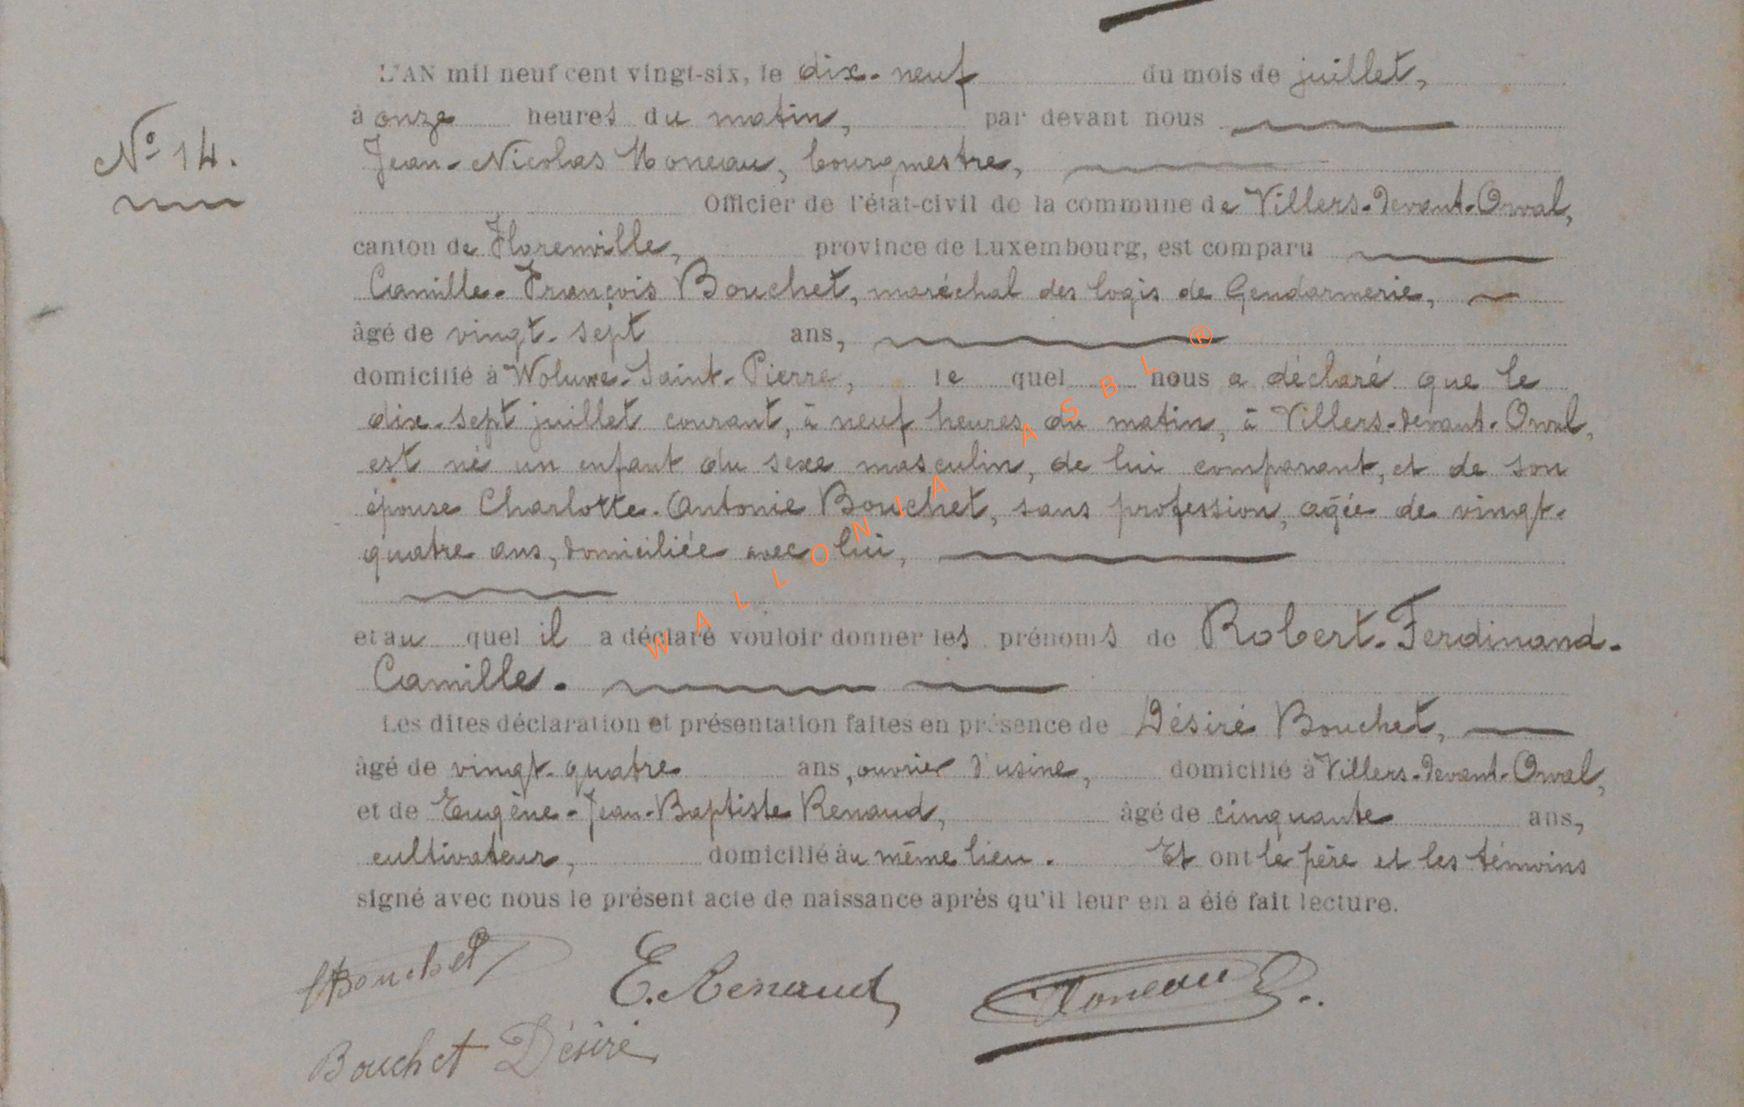 L'AN mil neuf cent vingt-six, le dix-neuf du mois de juillet,
à onze heures du matin, par devant nous
N° 14.
Jean-Nicolas Noneau, bourgmestre,
Officier de l'état-civil de la commune de Villers-devant-Orval,
canton de Florenville, province de Luxembourg, est comparu
Camille-François Bouchet, maréchal des logis de Gendarmerie,
âgé de vingt-sept ans,
domicilié à Woluwe-Saint-Pierre, le quel nous a déclaré que le
dix-sept juillet courant, à neuf heures du matin, à Villers-devant-Orval,
est né un enfant du sexe masculin, de lui comparant, et de son
épouse Charlotte-Antonie Bouchet, sans profession, agée de vingt-
quatre ans, domiciliée avec lui,
et au quel il a déclaré vouloir donner les prénoms de Robert-Ferdinand-
Camille.
Les dites déclaration et présentation faites en présence de Désiré Bouchet,
âgé de vingt-quatre ans, ouvrier d'usine, domicilié à Villers-devant-Orval,
et de Eugène-Jean-Baptiste Renaud, âgé de cinquante ans,
cultivateur, domicilié au même lieu. Et ont le père et les témoins
signé avec nous le présent acte de naissance après qu'il leur en a été fait lecture.
Bouchet E. Renaud Noneau
Bouchet Désiré
WALLONIA ASBL ®